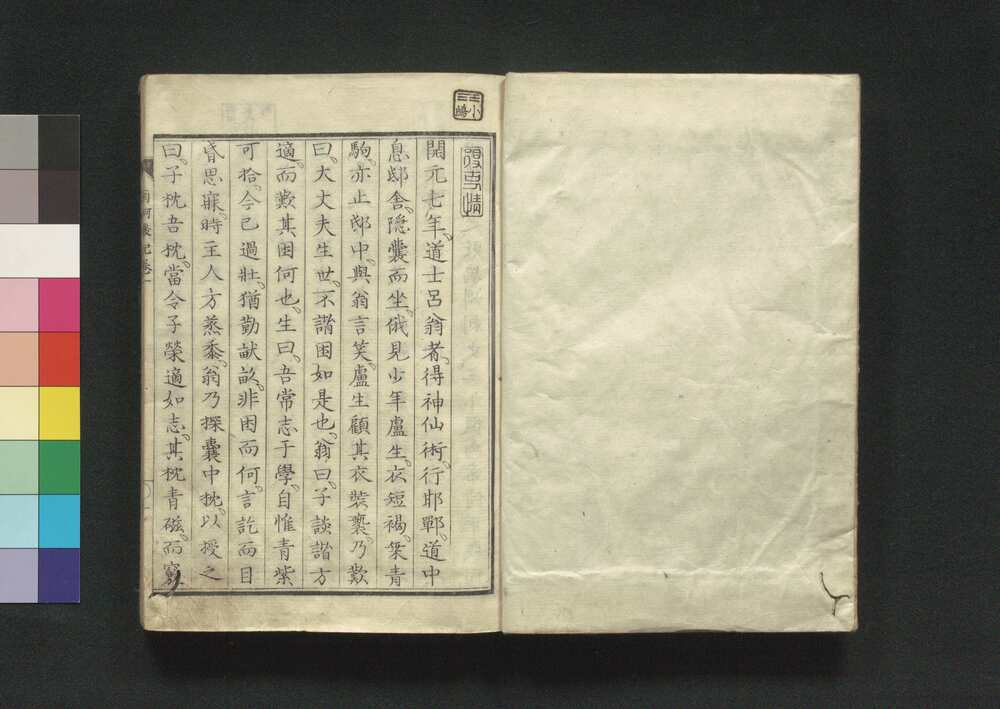 小嶋
開元七年。道士呂翁者。得神仙術。行邯鄲。道中
息邸舍。隱囊而坐。俄見少年盧生。衣短褐。桀青
駒。亦止邸中。與翁言笑。盧生顧其衣裝褻。乃歎
曰。大丈夫生世。不諧困如是也。翁曰。子談諧方
適。而歎其困何也。生曰。吾常志于學。自惟青紫
可拾。今已過壯。猶勤畎畝。非困而何。言訖而目
昏思寐。時主人方蒸黍。翁乃探囊中枕。以授之
曰。子枕吾枕。當令子榮適如志。其枕青磁。而竅